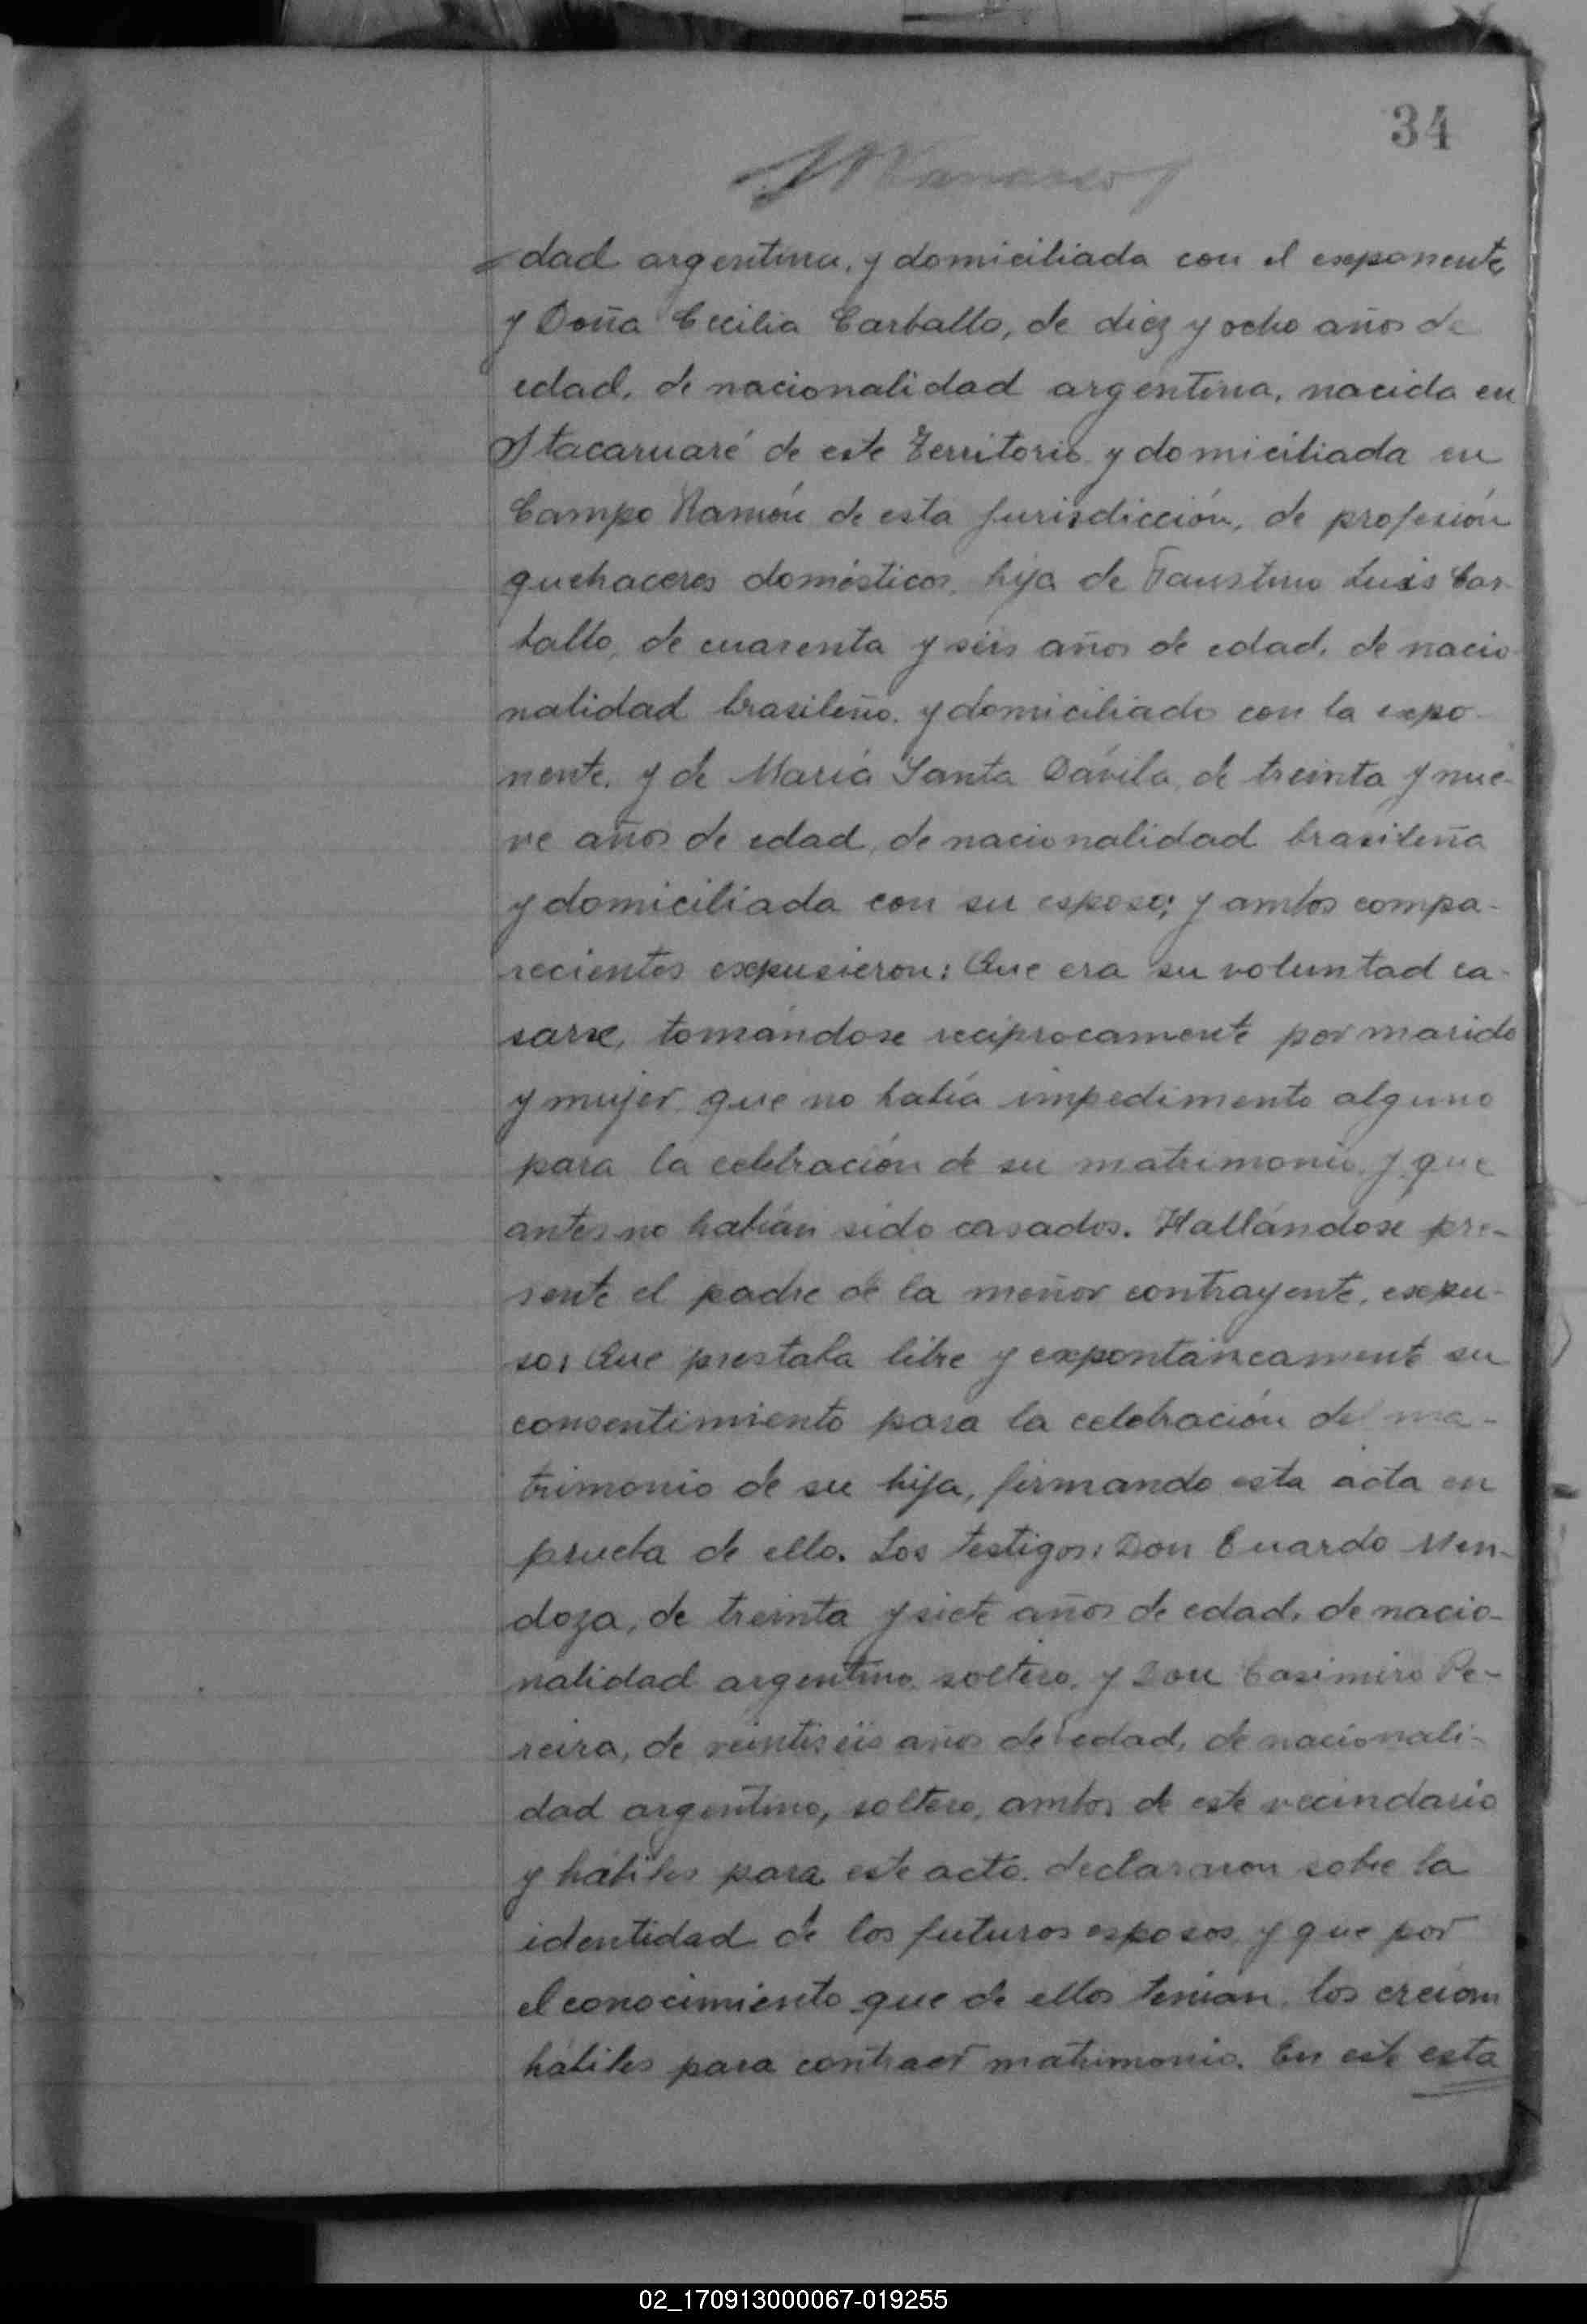 34
dad argentina, y domiciliada con el exponente,
y Doña Cecilia Carballo, de diez y ocho años de
edad, de nacionalidad argentina, nacida en
Itacaruaré de este Territorio y domiciliada en
Campo Ramón de esta jurisdicción, de profesión
quehaceres domésticos, hija de Faustino Luis Car-
ballo, de cuarenta y seis años de edad, de nacio-
nalidad brasileño, y domiciliado con la expo-
nente, y de María Santa Dávila, de treinta y nue-
ve años de edad, de nacionalidad brasileña
y domiciliada con su esposo; y ambos compa-
recientes expusieron: Que era su voluntad ca-
sarse, tomándose recíprocamente por marido
y mujer, que no había impedimento alguno
para la celebración de su matrimonio, y que
antes no habían sido casados. Hallándose pre-
sente el padre de la menor contrayente, expu-
so: Que prestaba libre y expontáneamente su
consentimiento para la celebración del ma-
trimonio de su hija, firmando esta acta en
prueba de ello. Los testigos: Don Euardo Men-
doza, de treinta y siete años de edad, de nacio-
nalidad argentino, soltero, y Don Casimiro Pe-
reira, de veintiseis años de edad, de nacionali-
dad argentino, soltero, ambos de este vecindario
y hábiles para este acto, declararon sobre la
identidad de los futuros esposos, y que por
el conocimiento que de ellos tenían, los creían
hábiles para contraer matrimonio. En este esta
02_170913000067-019255